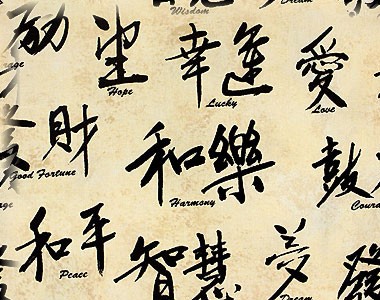 Wisdom
Dream
望
Hope
幸運
Lucky
愛
Love
財
Good Fortune
和樂
Harmony
鼓
Coura
和平
Peace
智慧
夢
Dream
發